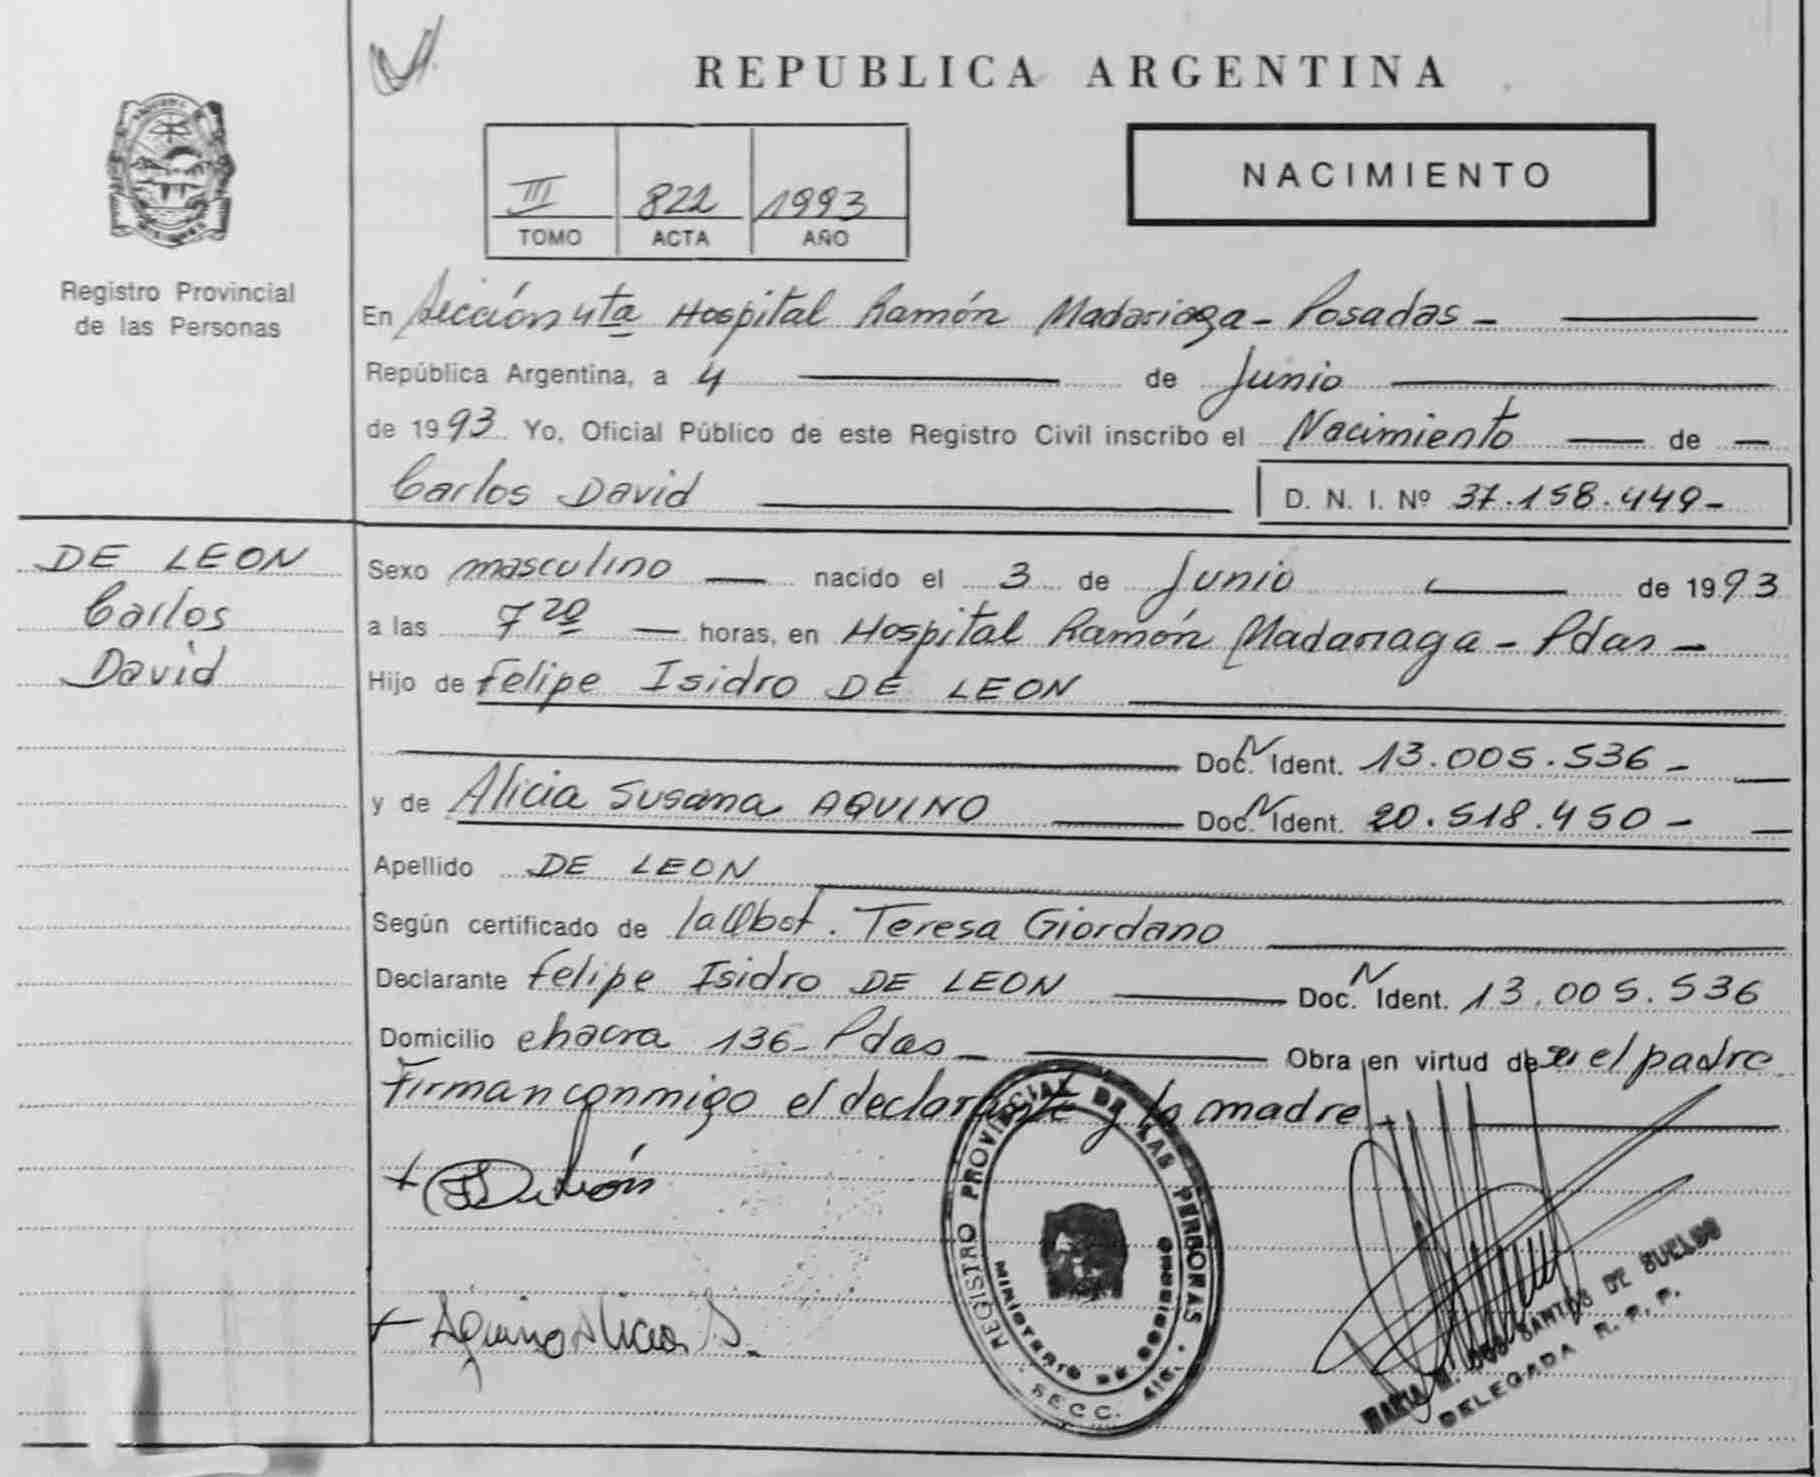 REPUBLICA ARGENTINA
NACIMIENTO
III 822 1993
TOMO ACTA AÑO
Registro Provincial
de las Personas
En Sección 4ta Hospital Ramón Madariaga - Posadas -
República Argentina, a 4 de Junio
de 1993 Yo, Oficial Público de este Registro Civil inscribo el Nacimiento de
Carlos David D. N. I. Nº 37.158.449-
DE LEON
Carlos
David
Sexo masculino nacido el 3 de Junio de 1993
a las 7 20 horas, en Hospital Ramón Madariaga - Pdas -
Hijo de Felipe Isidro DE LEON
Doc. N Ident. 13.005.536 -
y de Alicia Susana AQUINO Doc. N Ident. 20.518.450 -
Apellido DE LEON
Según certificado de Teresa Giordano
Declarante Felipe Isidro DE LEON Doc. N Ident. 13.005.536
Domicilio chacra 136 - Pdas - Obra en virtud de el padre
Firman conmigo el declarante y la madre
REGISTRO PROVINCIAL DE LAS PERSONAS
MINISTERIO DE GOBIERNO
SECC. 4ta.
+ De León
+ Aquino Alicia S.
MARIA DOS SANTOS DE SUELDO
DELEGADA R. P. P.